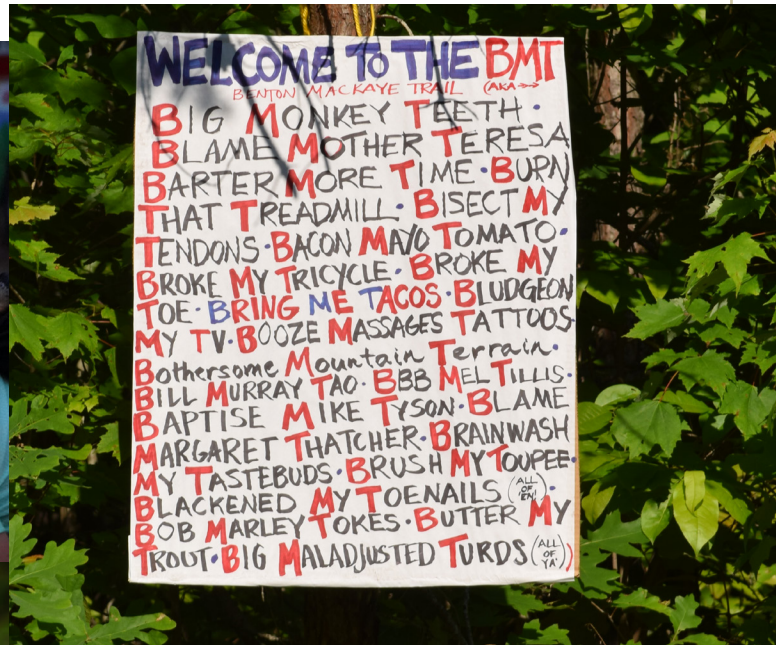 WELCOME TO THE BMT
BENTON MACKAYE TRAIL (AKA→
BIG MONKEY TEETH ·
BLAME MOTHER TERESA
BARTER MORE TIME · BURN
THAT TREADMILL · BISECT MY
TENDONS · BACON MAYO TOMATO ·
BROKE MY TRICYCLE · BROKE MY
TOE · BRING ME TACOS · BLUDGEON
MY TV · BOOZE MASSAGES TATTOOS·
Bothersome Mountain Terrain ·
BILL MURRAY TAO · BBB MEL TILLIS ·
BAPTISE MIKE TYSON · BLAME
MARGARET THATCHER · BRAINWASH
MY TASTEBUDS · BRUSH MY TOUPEE ·
BLACKENED MY TOENAILS (ALL OF 'EN) ·
BOB MARLEY TOKES · BUTTER MY
TROUT · BIG MALADJUSTED TURDS (ALL OF YA'))